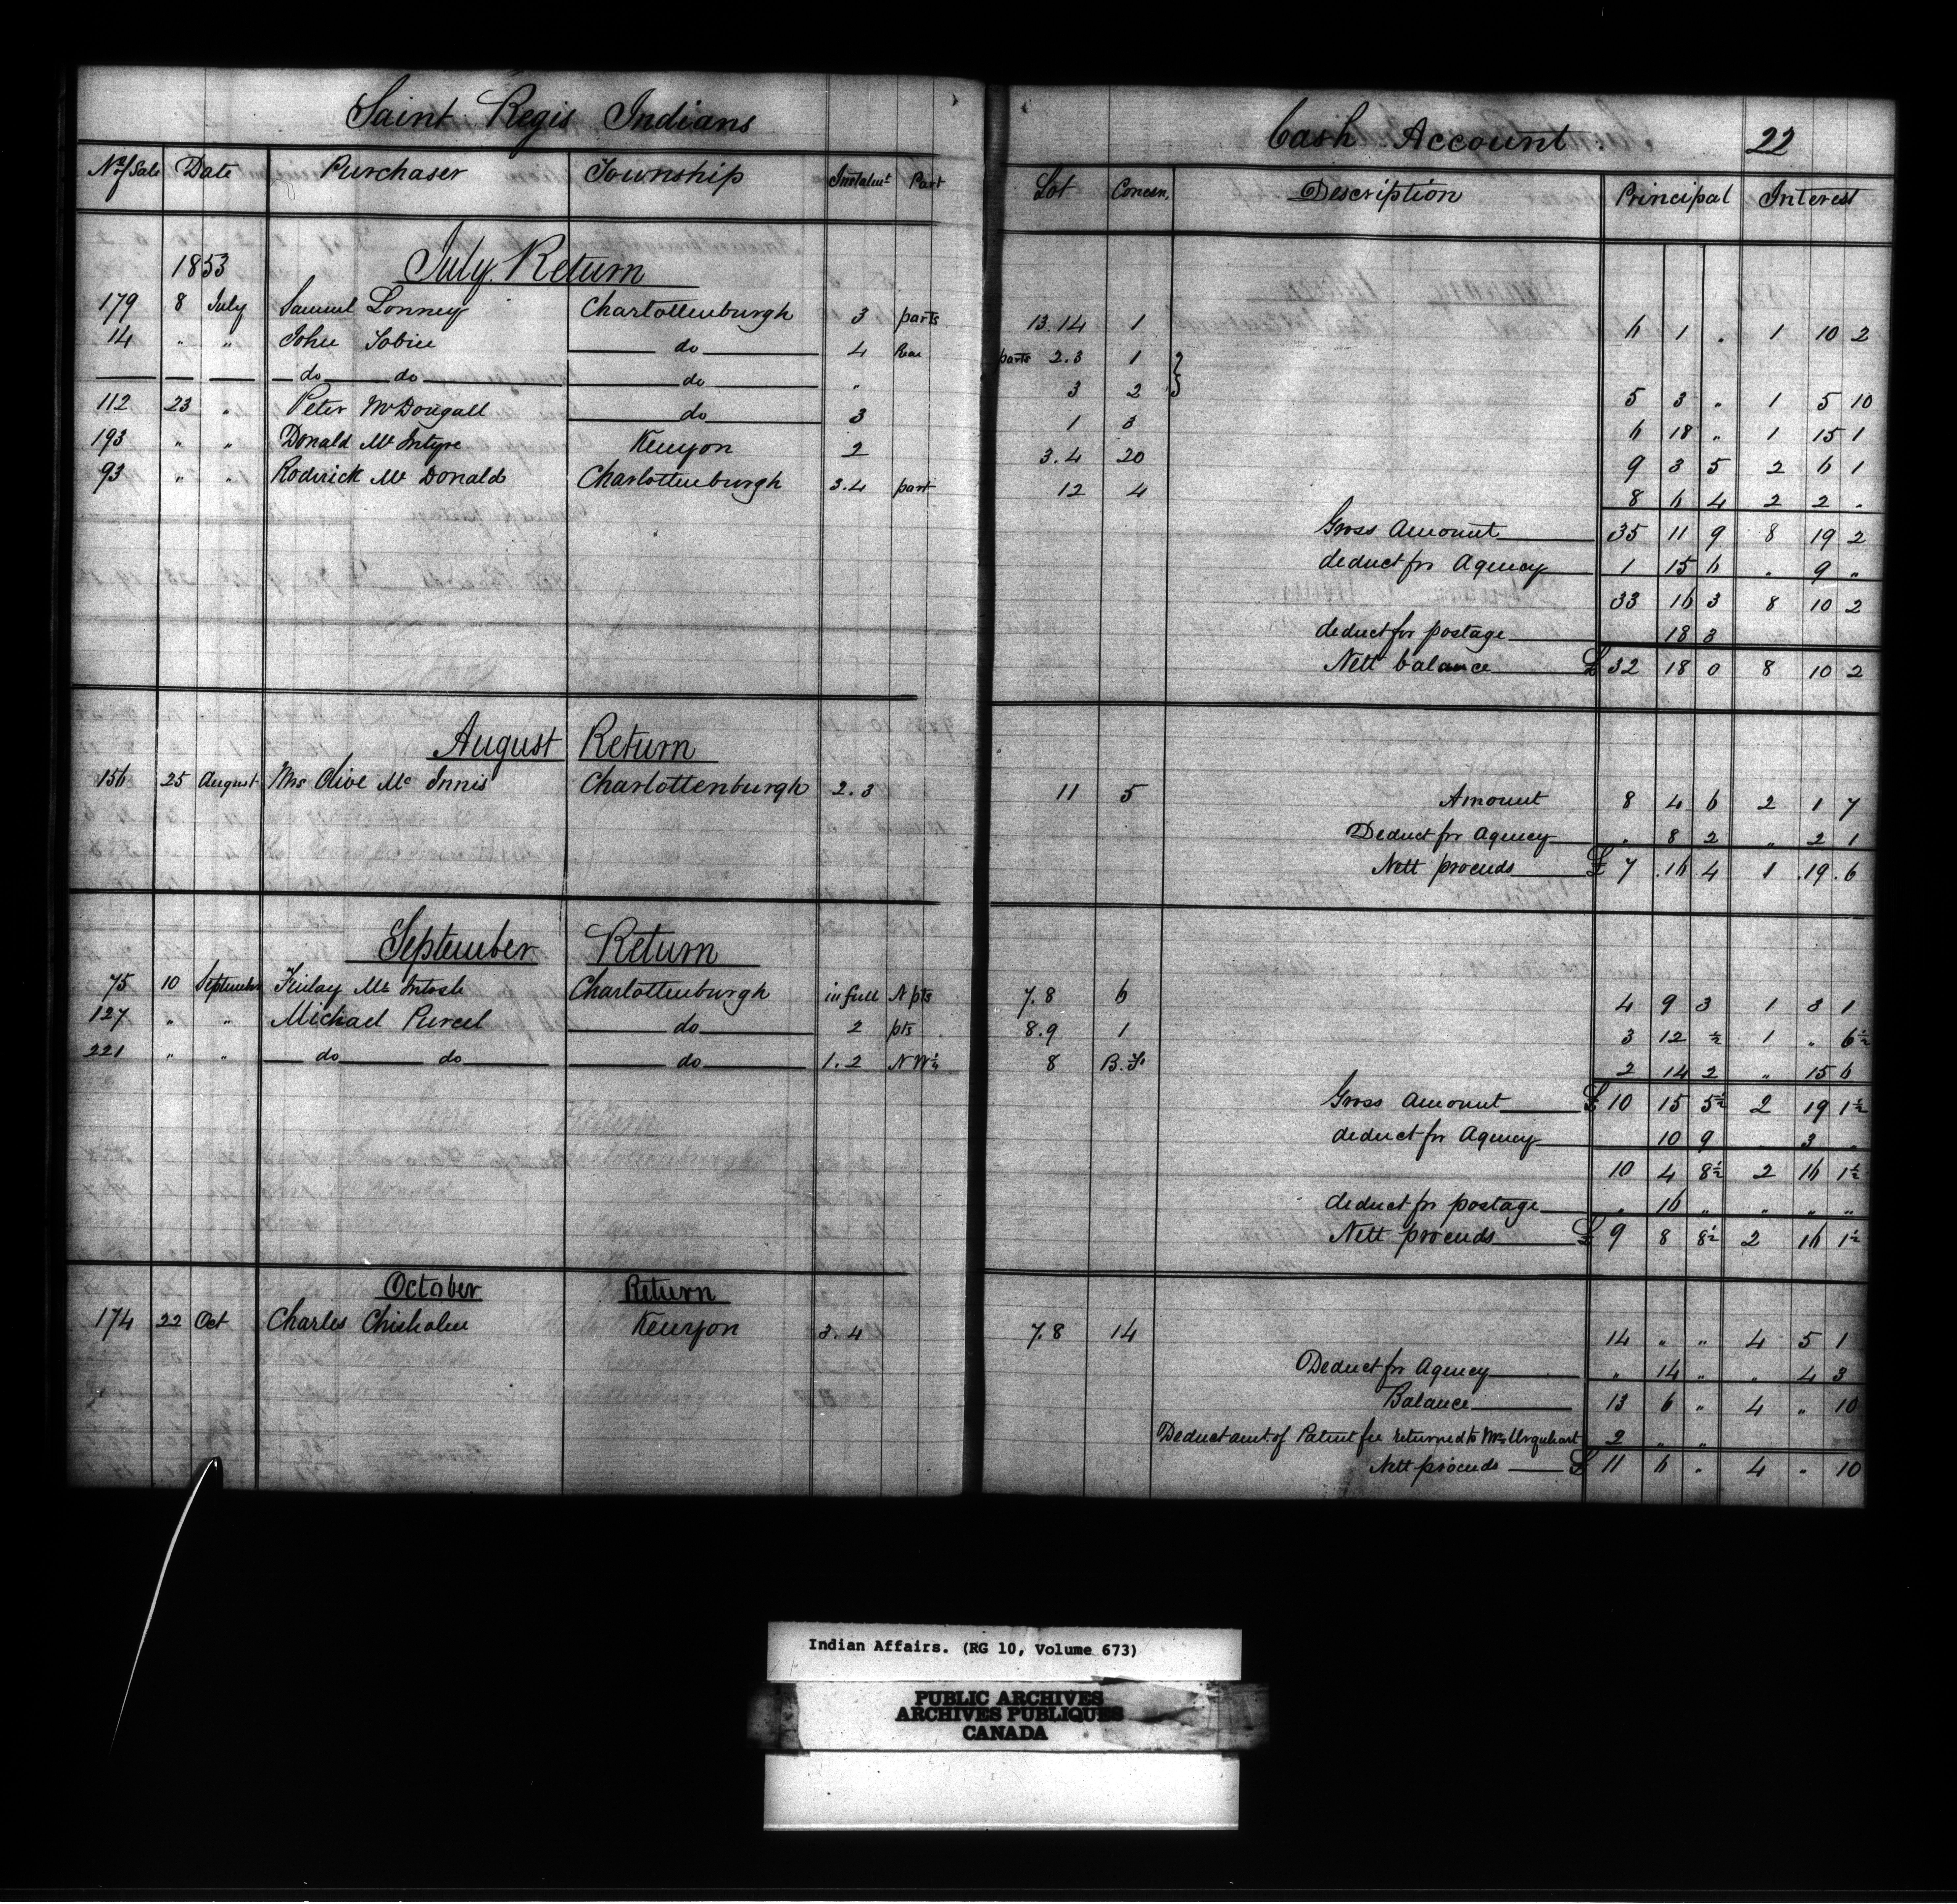 Saint Regis Indians Cash Account 22
No of Sale Date Purchaser Township Instalmt Part Lot Concen. Description Principal Interest
1853 July Return
179 8 July Samuel Lonney Charlottenburgh 3 parts 13.14 1 6 1 " 1 10 2
14 " " John Tobin do 4 Rear parts 2.3 1
do do do " 3 2 5 3 " 1 5 10
112 23 " Peter McDougall do 3 1 3 6 18 " 1 15 1
193 " " Donald Mc Intyre Kenyon 2 3.4 20 9 3 5 2 6 1
93 " " Roderick Mc Donald Charlottenburgh 3.4 part 12 4 8 6 4 2 2 "
Gross Amount 35 11 9 8 19 2
deduct for Agency 1 15 6 " 9 "
33 16 3 8 10 2
deduct for postage 18 3
Nett balance £ 32 18 0 8 10 2
August Return
156 25 August Mrs Olive Mc Innis Charlottenburgh 2.3 11 5 Amount 8 4 6 2 1 7
Deduct for Agency " 8 2 " 2 1
Nett proceeds £ 7 .16 4 1 .19 .6
September Return
75 10 September Finlay Mc Intosh Charlottenburgh in full N pts 7.8 6 4 9 3 1 3 1
127 " " Michael Purcel do 2 pts 8.9 1 3 12 ½ 1 " 6½
221 " " do do do 1.2 N W¼ 8 B.F. 2 14 2 " 15 6
Gross Amount £ 10 15 5½ 2 19 1½
deduct for Agency 10 9 3 "
10 4 8½ 2 16 1½
deduct for postage " 16 " " " "
Nett proceeds £ 9 8 8½ 2 16 1½
October Return
174 22 Oct Charles Chisholm Kenyon 3.4 7.8 14 14 " " 4 5 1
Deduct for Agency " 14 " " 4 3
Balance 13 6 " 4 " 10
Deduct amt. of Patent fee returned to Mrs Urquhart 2 " "
Nett proceeds £ 11 6 " 4 " 10
Indian Affairs. (RG 10, Volume 673)
PUBLIC ARCHIVES
ARCHIVES PUBLIQUES
CANADA